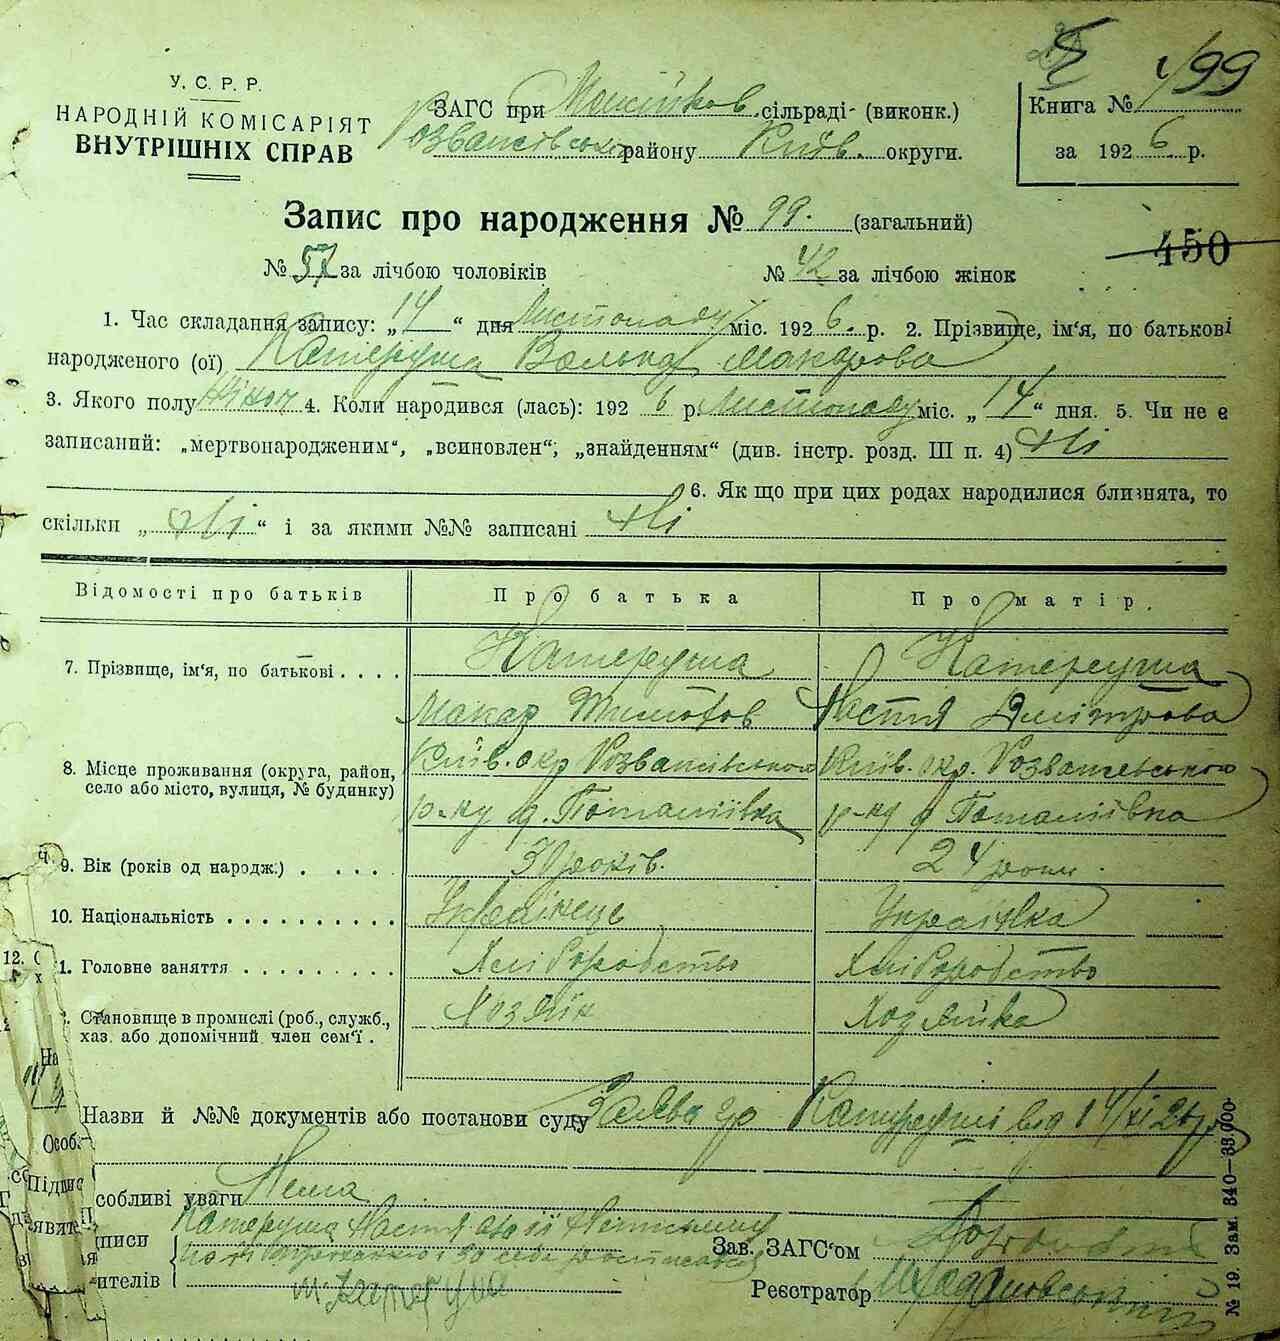 99
У.С.Р.Р.
НАРОДНІЙ КОМІСАРІЯТ
ВНУТРІШНІХ СПРАВ
ЗАГС при сільраді- (виконк.)
району Київ. округи.
Книга №
за 1926 р.
Запис про народження № 99. (загальний)
450
№ 57 за лічбою чоловіків № 42 за лічбою жінок
1. Час складання запису: „14“ дня Листопаду міс. 1926. р. 2. Прізвище, ім'я, по батькові
народженого (ої) Катеруша Макарова
3. Якого полу жіноч 4. Коли народився (лась): 1926 р. Листопаду міс. „14“ дня. 5. Чи не є
записаний: „мертвонародженим“, „всиновлен“; „знайденням“ (див. інстр. розд. III п. 4) Ні
6. Як що при цих родах народилися близнята, то
скільки „Ні“ і за якими №№ записані Ні
Відомості про батьків Про батька Про матір.
7. Прізвище, ім'я, по батькові . . . . Катеруша Катеруша
Макар Тимофов Настя Дмітрова
8. Місце проживання (округа, район, Київ. окр. Розважівського Київ. окр. Розважевського
село або місто, вулиця, № будинку) р-ну д. Поталіївка р-ну д Поталіївка
9. Вік (років од народж.) . . . . 30 років. 24 роки.
10. Національність . . . . . . . . . . Українець Українка
1. Головне заняття . . . . . . . . . Хліборобство Хліборобство
Становище в промислі (роб., служб., Хозяїн Хозяйка
хаз. або допомічний член сем'ї .
Назви й №№ документів або постанови суду Заява гр Катеруші від 14/XI 26 р
собливі уваги Нема
писи Катеруша Настя
Зав. ЗАГС'ом
ителів
Реєстратор
№ 19. Зам. 340—33.000
12.
На
Особ.
Підпис
явит